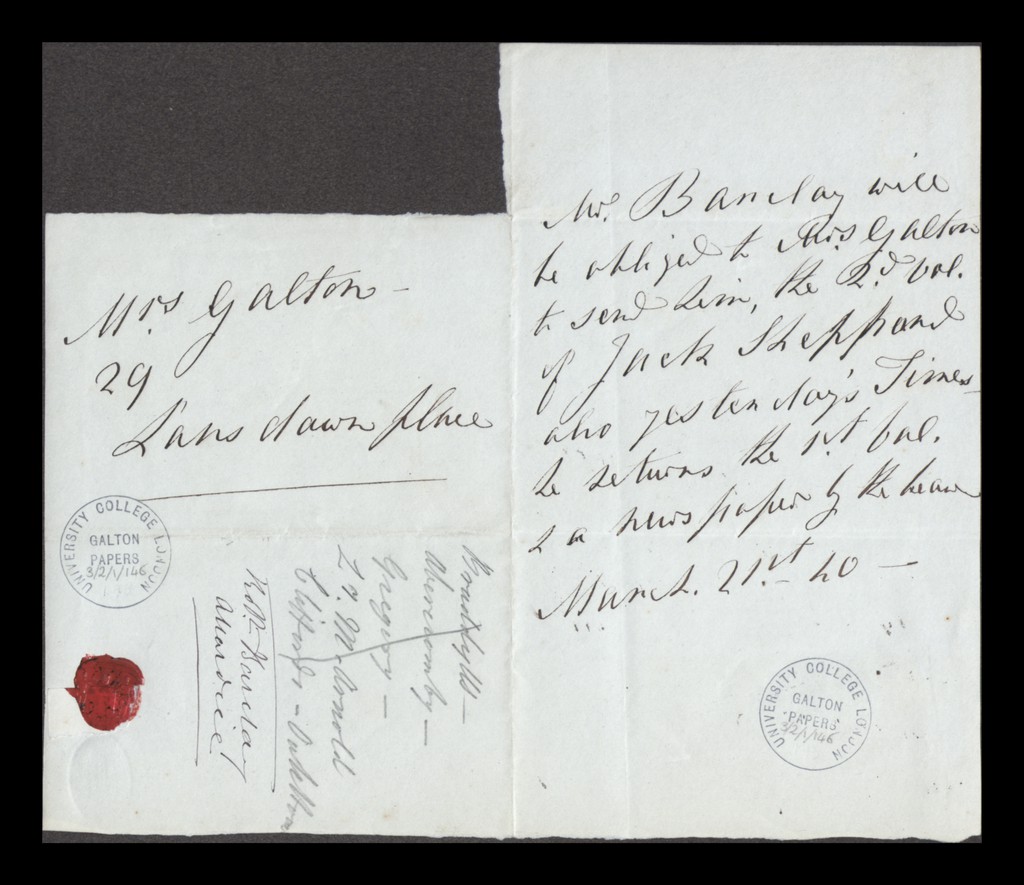 Mrs Galton -
29
Lansdown place
UNIVERSITY COLLEGE LONDON
GALTON
PAPERS
3/2/1/146
Braddylls -
Abercromby -
Gregory -
Ly McDonold
Cliffords -
Robt. Barclay
Allardice!
Mr. Barclay will
be obliged to Mrs Galton
to send him, the 2d. vol.
of Jack Sheppard
also yesterday's Times -
he returns the 1st vol.
& a newspaper by the bearer
March. 21st - 40 -
UNIVERSITY COLLEGE LONDON
GALTON
PAPERS
3/2/1/146